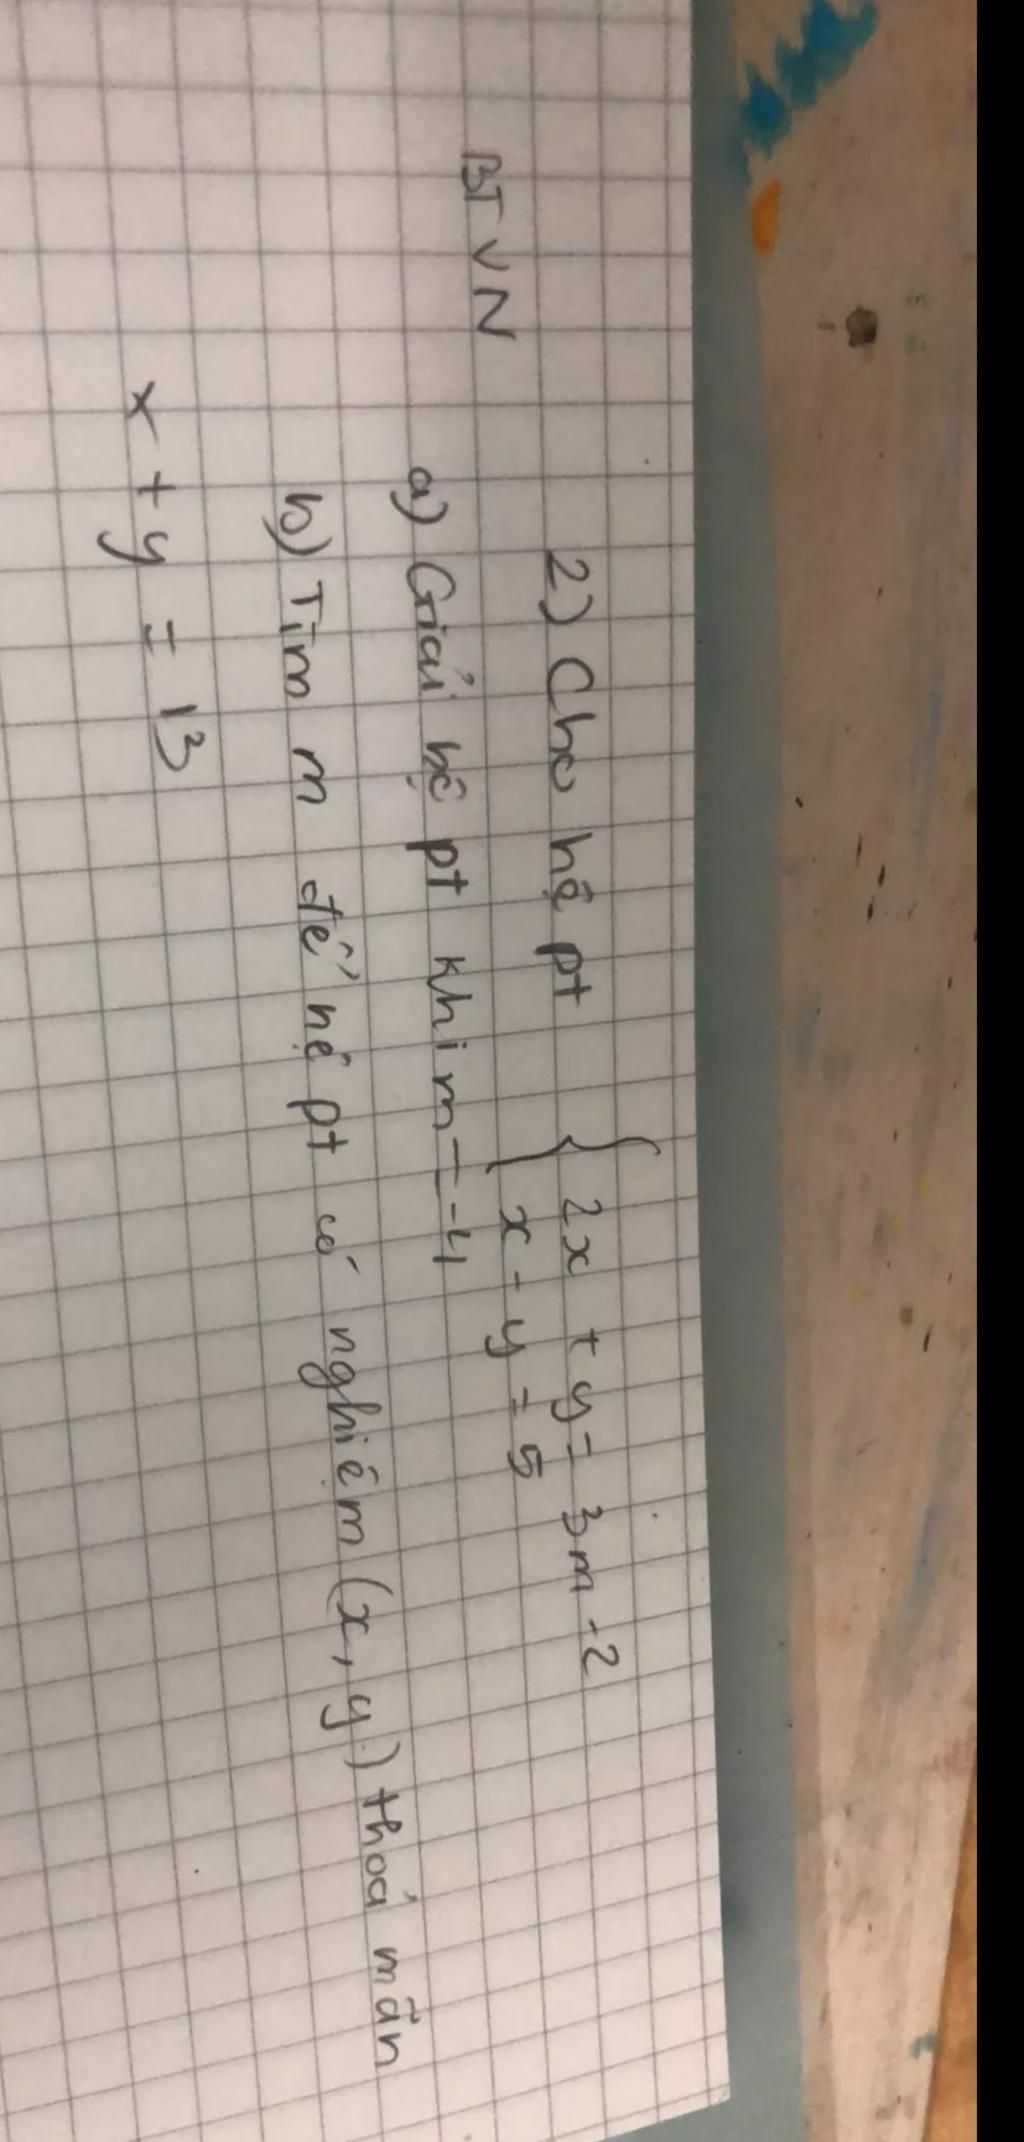 BTVN
2) Cho hệ pt { 2x + y = 3m - 2
x - y = 5
a) Giải hệ pt khi m = -4
b) Tìm m để hệ pt có nghiệm (x, y) thoả mãn
x + y = 13